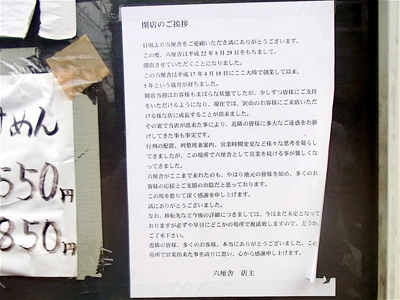 閉店のご挨拶
日頃より六厘舎をご愛顧いただき誠にありがとうございます。
この度、六厘舎は平成 22 年 8 月 29 日をもちまして、
閉店させていただくことになりました。
この六厘舎は平成 17 年 4 月 18 日にここ大崎で創業して以来、
5 年という歳月が経ちました。
開店当初はお客様もまばらな状態でしたが、少しずつ皆様にご支持
をいただけるようになり、現在では、沢山のお客様にご来店いただ
ける様な店に成長することが出来ました。
その裏で当店が出来た事により、近隣の皆様に多大なご迷惑をお掛
けしてきた事も事実です。
行列の配置、列整理兼案内、営業時間変更など様々な思考を凝らし
てきましたが、この場所で六厘舎として営業を続ける事が難しくな
ってきました。
六厘舎がここまで来れたのも、やはり地元の皆様を始め、多くのお
客様の応援とご支援のお陰だと思っております。
この場を借りて深く感謝を申し上げます。
誠にありがとうございました。
なお、移転先など今後の詳細につきましては、今はまだ未定となって
おりますが必ずや早目にどこかの場所で復活致しますので、どうか
ご了承下さい。
近隣の皆様、多くのお客様、本当にありがとうございました。この
場所で営業出来た事を誇りに思い、心から感謝申し上げます。
六厘舎 店主
けめん
550円
850円